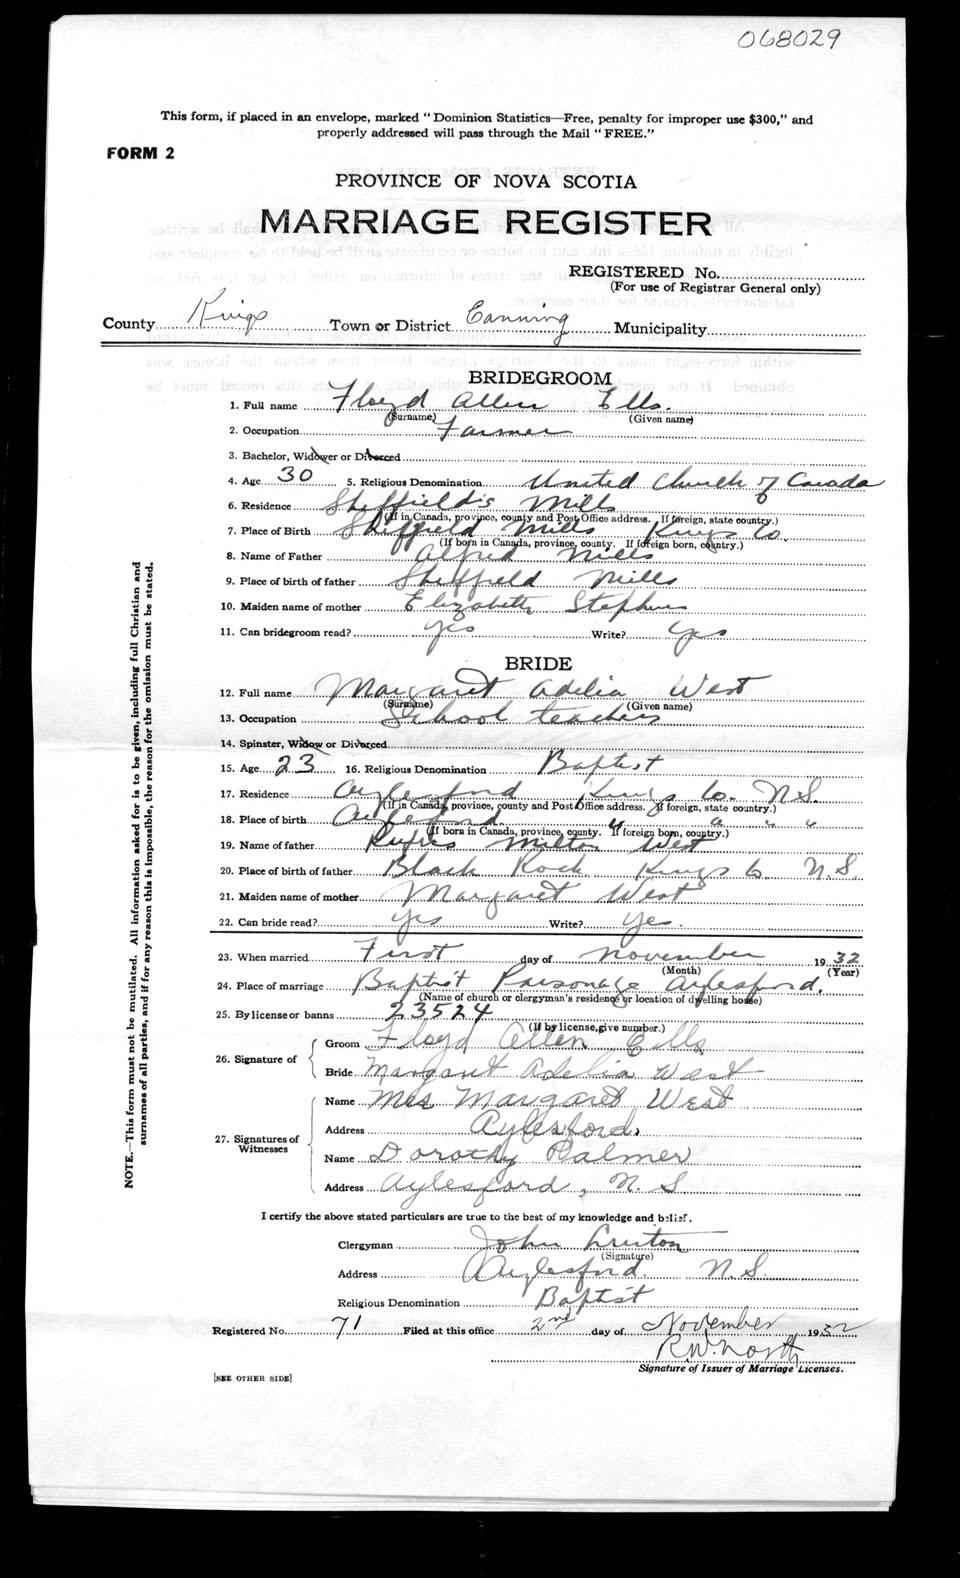 068029
This form, if placed in an envelope, marked "Dominion Statistics—Free, penalty for improper use $300," and
properly addressed will pass through the Mail "FREE."
FORM 2
PROVINCE OF NOVA SCOTIA
MARRIAGE REGISTER
REGISTERED No.
(For use of Registrar General only)
County Kings Town or District Canning Municipality
BRIDEGROOM
1. Full name Floyd Allen Ells.
(Surname) (Given name)
2. Occupation Farmer
3. Bachelor, Widower or Divorced
4. Age 30 5. Religious Denomination United Church of Canada
6. Residence Sheffield's Mills
(If in Canada, province, county and Post Office address. If foreign, state country.)
7. Place of Birth Sheffield Mills Kings Co.
(If born in Canada, province, county. If foreign born, country.)
8. Name of Father Alfred Mills
9. Place of birth of father Sheffield Mills
10. Maiden name of mother Elizabeth Stephens
11. Can bridegroom read? yes Write? yes
BRIDE
12. Full name Margaret Adelia West
(Surname) (Given name)
13. Occupation School teacher
14. Spinster, Widow or Divorced
15. Age 23 16. Religious Denomination Baptist
17. Residence Aylesford Kings Co. N.S.
(If in Canada, province, county and Post Office address. If foreign, state country.)
18. Place of birth Aylesford " " " "
(If born in Canada, province, county. If foreign born, country.)
19. Name of father Rufus Milton West
20. Place of birth of father Black Rock Kings Co N.S.
21. Maiden name of mother Margaret West
22. Can bride read? yes Write? yes.
23. When married First day of November 1932
(Month) (Year)
24. Place of marriage Baptist Parsonage Aylesford.
(Name of church or clergyman's residence or location of dwelling house)
25. By license or banns 23524
(If by license, give number.)
26. Signature of
Groom Floyd Allen Ells
Bride Margaret Adelia West
27. Signatures of Witnesses
Name Mrs Margaret West
Address Aylesford,
Name Dorothy Palmer
Address Aylesford, N. S
I certify the above stated particulars are true to the best of my knowledge and belief.
Clergyman John
(Signature)
Address Aylesford. N.S.
Religious Denomination Baptist
Registered No. 71 Filed at this office 2nd day of November 1932
R.W. North
Signature of Issuer of Marriage Licenses.
[SEE OTHER SIDE]
NOTE.—This form must not be mutilated. All information asked for is to be given, including full Christian and
surnames of all parties, and if for any reason this is impossible, the reason for the omission must be stated.